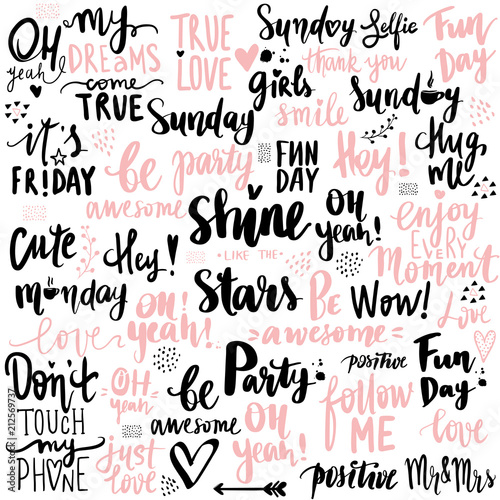 Oh
yeah!
my
DREAMS
come
TRUE
TRUE
LOVE
Sunday Selfie
thank you
Fun
DAY
girls
Sunday
smile
Sunday
it's
FRiDAY
be party
awesome
FUN
DAY
Hey!
Hug
me
Shine
LIKE THE
Stars
OH
yeah!
enjoy
EVERY
Moment
Cute
monday
Hey!
OH!
yeah!
Be
awesome
Wow!
Love
love
Don't
TOUCH
my
PHONE
OH
yeah
be
awesome
Party
positive
Fun
DAY
Just
love
OH
yeah!
follow
ME
love
positive
Mr&Mrs
Adobe Stock | #212569737